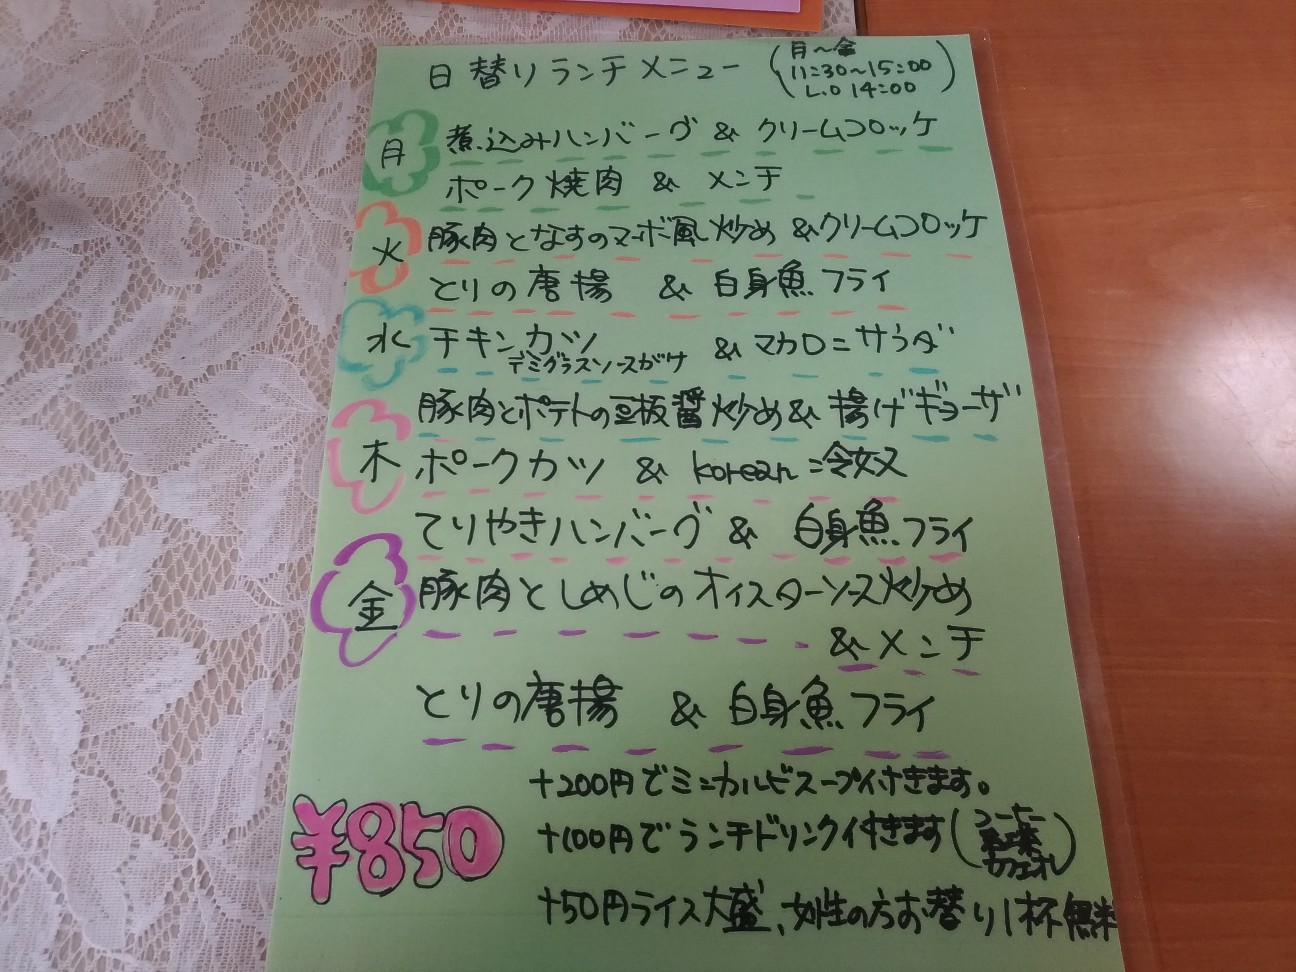 日替りランチメニュー (月~金
11:30~15:00
L.O 14:00)
月 煮込みハンバーグ & クリームコロッケ
ポーク焼肉 & メンチ
火 豚肉となすのマーボ風炒め &クリームコロッケ
とりの唐揚 & 白身魚フライ
水 チキンカツ & マカロニサラダ
デミグラスソースがけ
豚肉とポテトの豆板醤炒め & 揚げギョーザ
木 ポークカツ & korean冷奴
てりやきハンバーグ & 白身魚フライ
金 豚肉としめじのオイスターソース炒め
& メンチ
とりの唐揚 & 白身魚フライ
+200円でミニカルビスープ付きます。
¥850
+100円でランチドリンク付きます(コーヒー
紅茶
カフェオレ)
+50円ライス大盛、女性の方お替り1杯無料